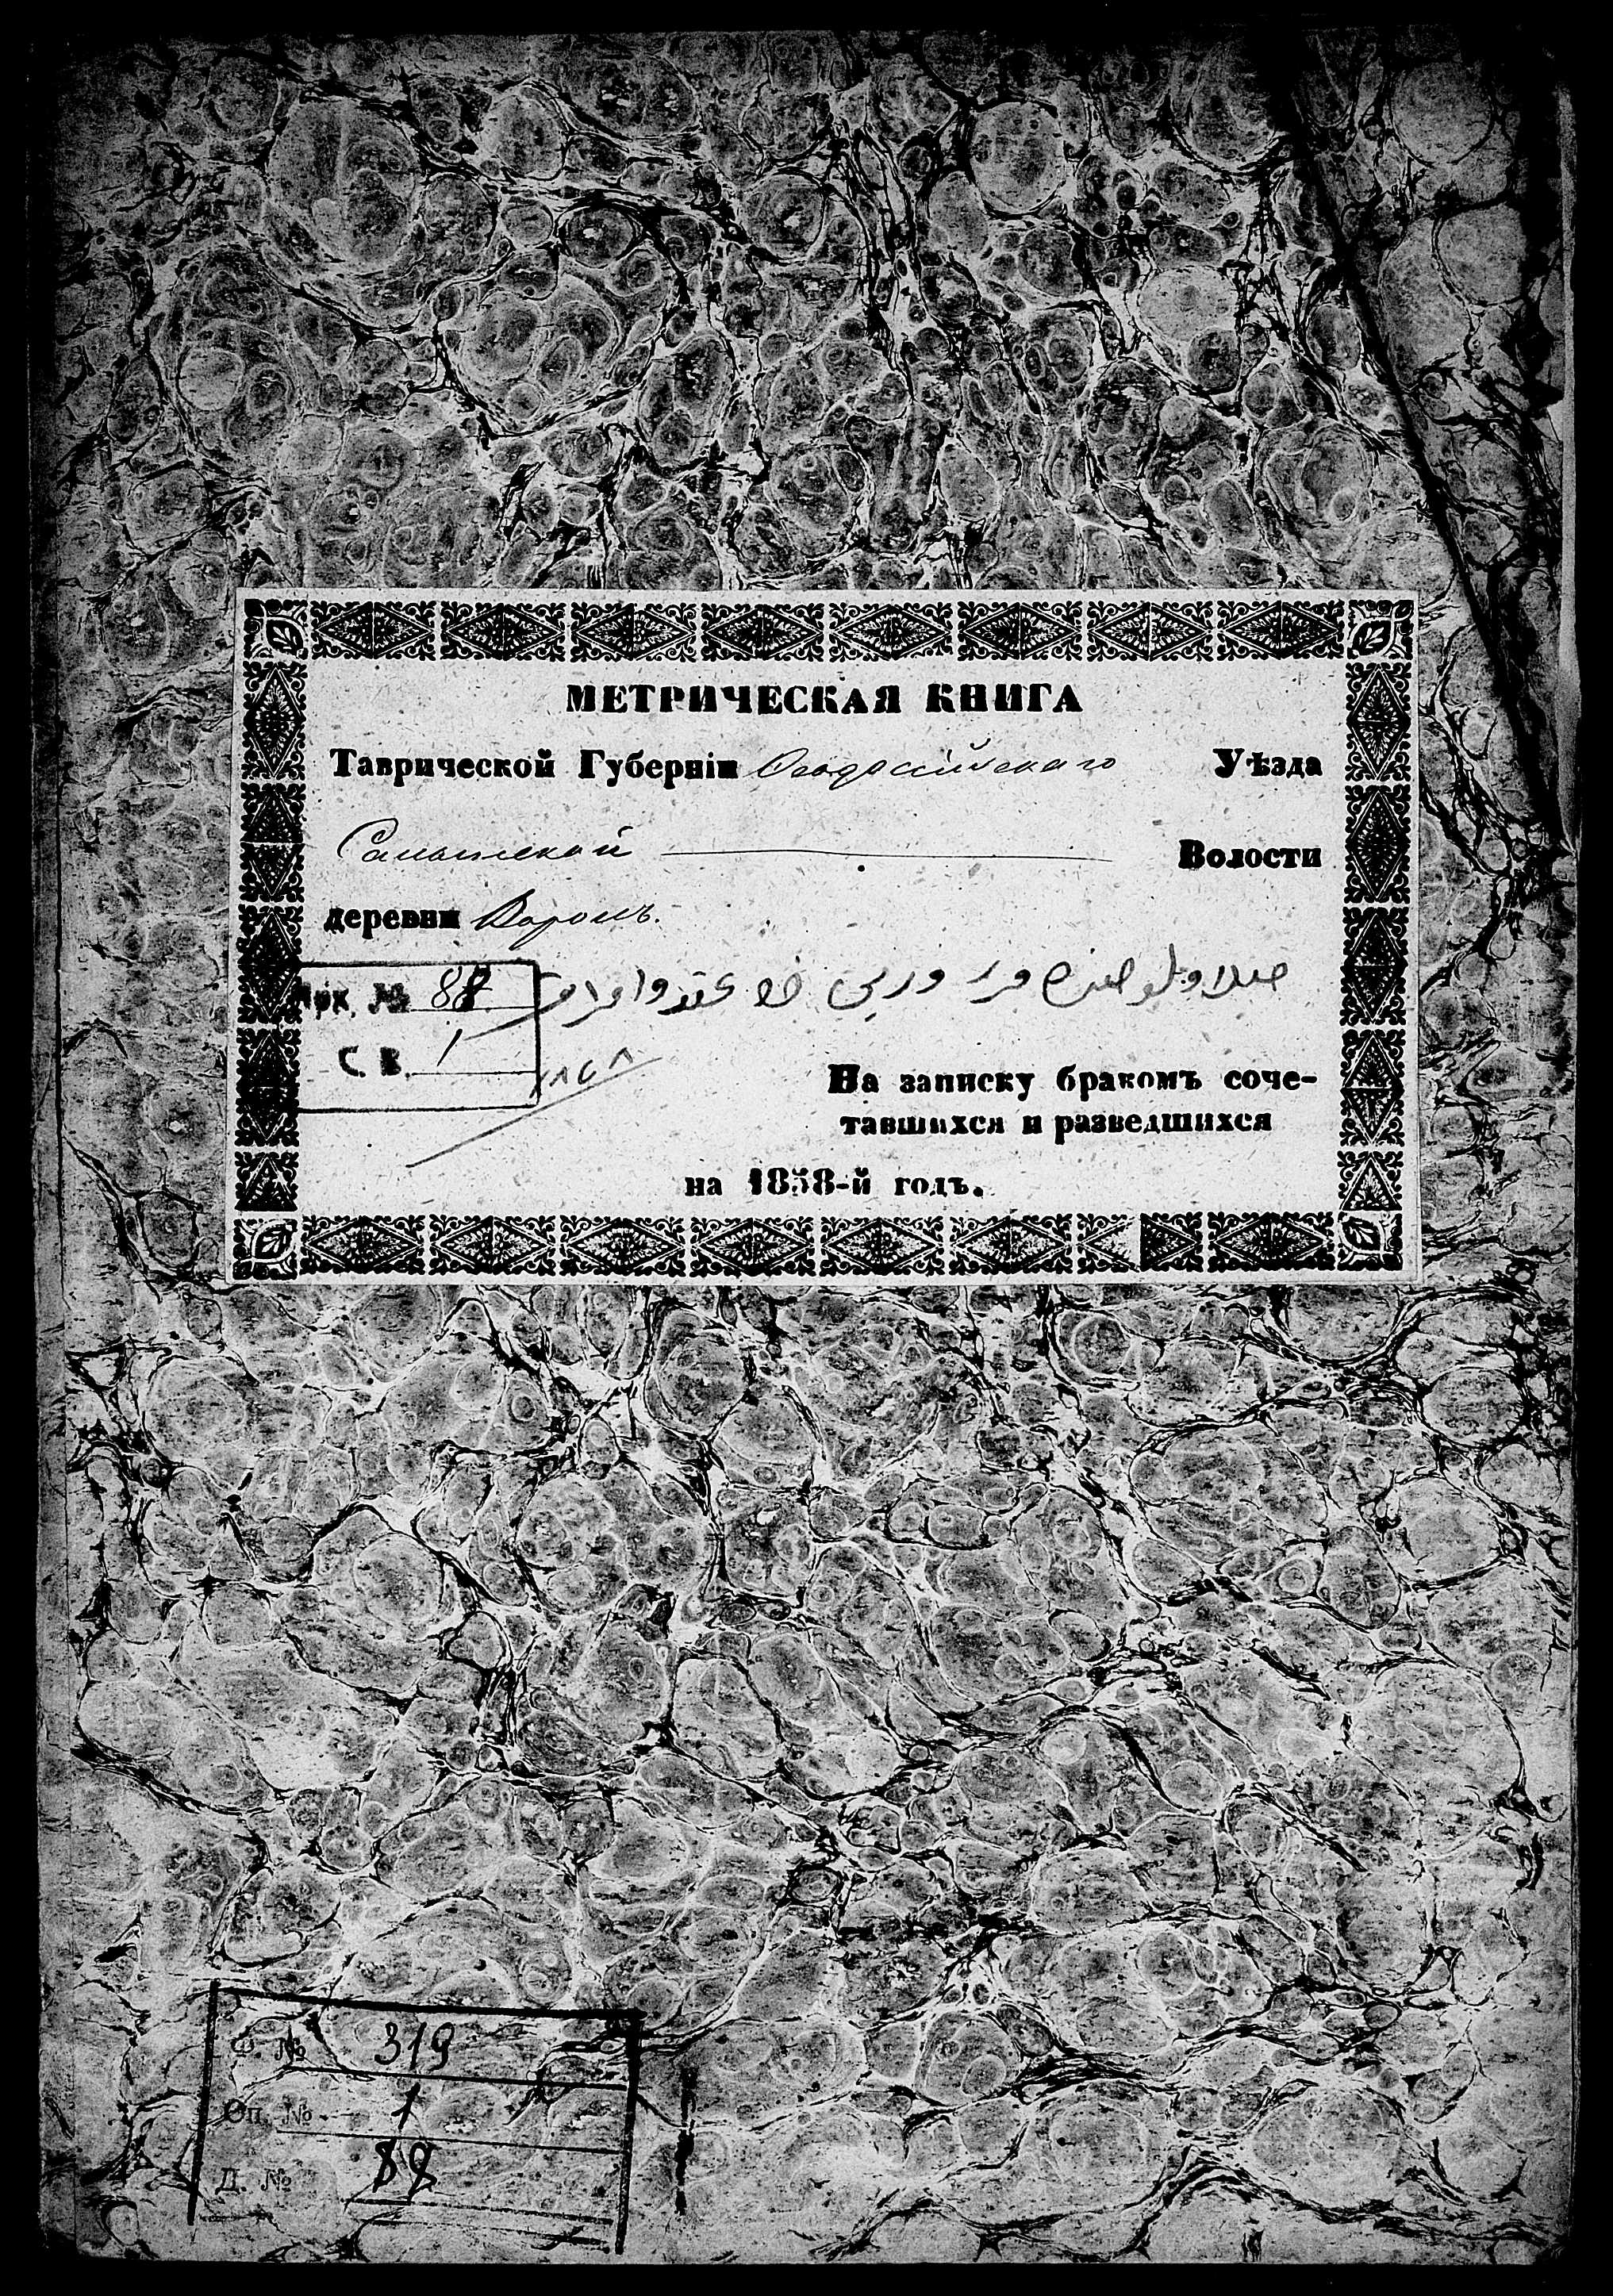 МЕТРИЧЕСКАЯ КНИГА
Таврической Губерніи Ѳеодосійскаго Уѣзда
Салынской Волости
деревни Воронъ.
Арх. № 88
С. В. 1
١٨٥٨
На записку бракомъ соче-
тавшихся и разведшихся
на 1858-й годъ.
Ф. № 319
Оп. № 1
Д. № 88